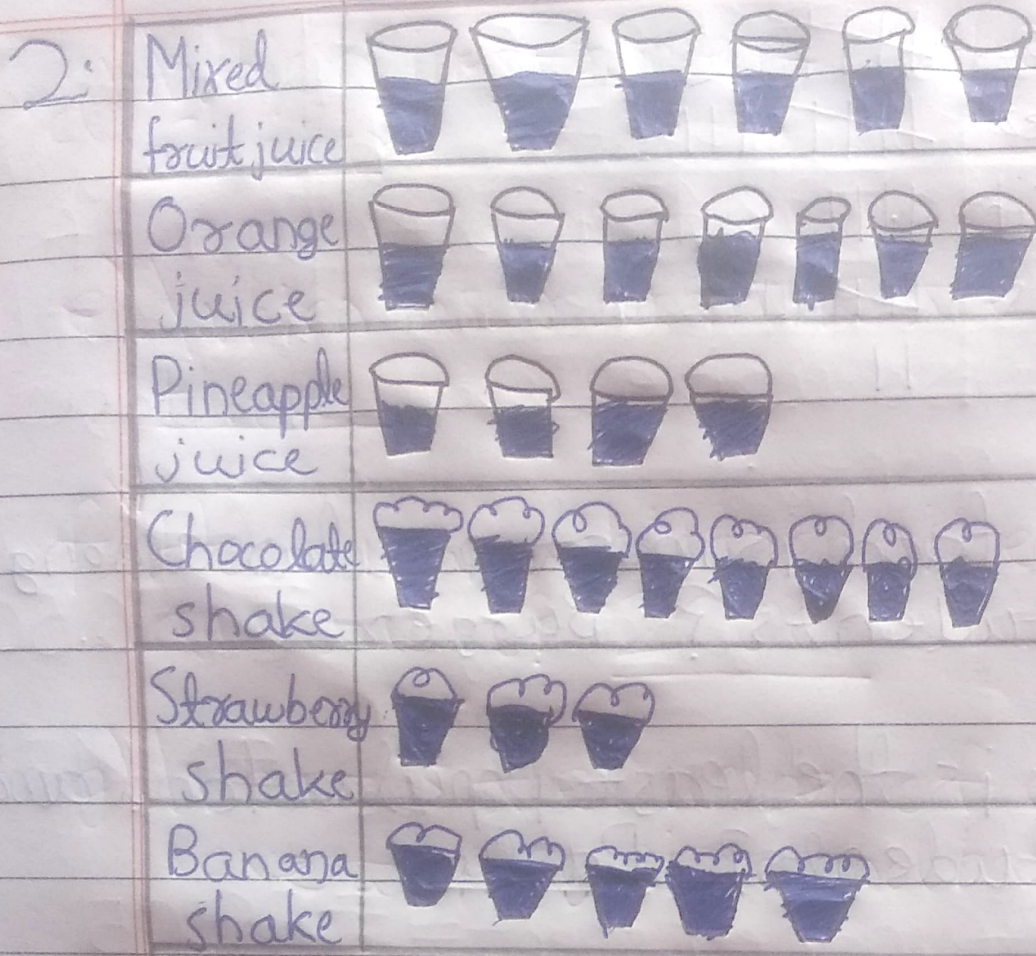 2.
Mixed
fruit juice
Orange
juice
Pineapple
juice
Chocolate
shake
Strawberry
shake
Banana
shake